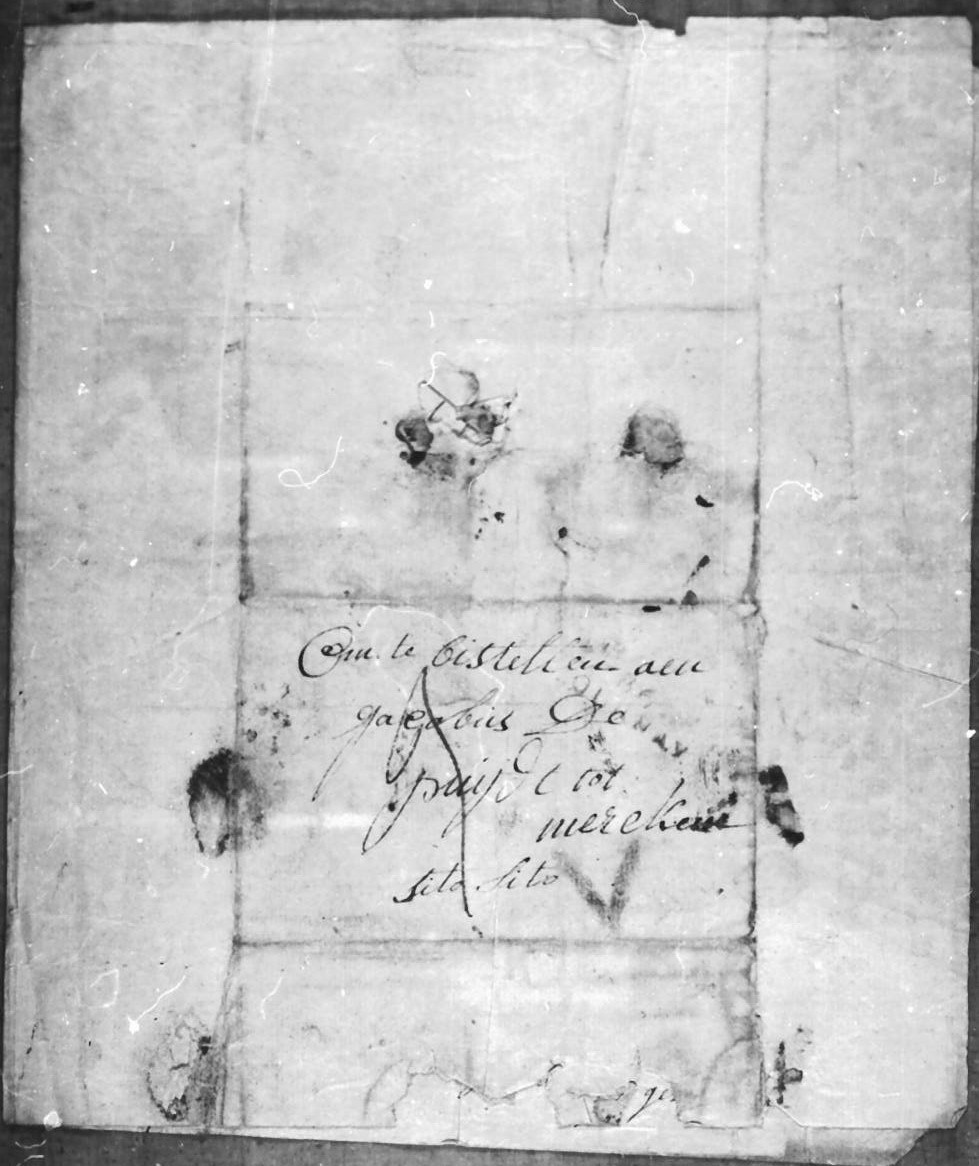 Om te bistellen aen
Jacobus De
puijdt tot
mercken
sito sito